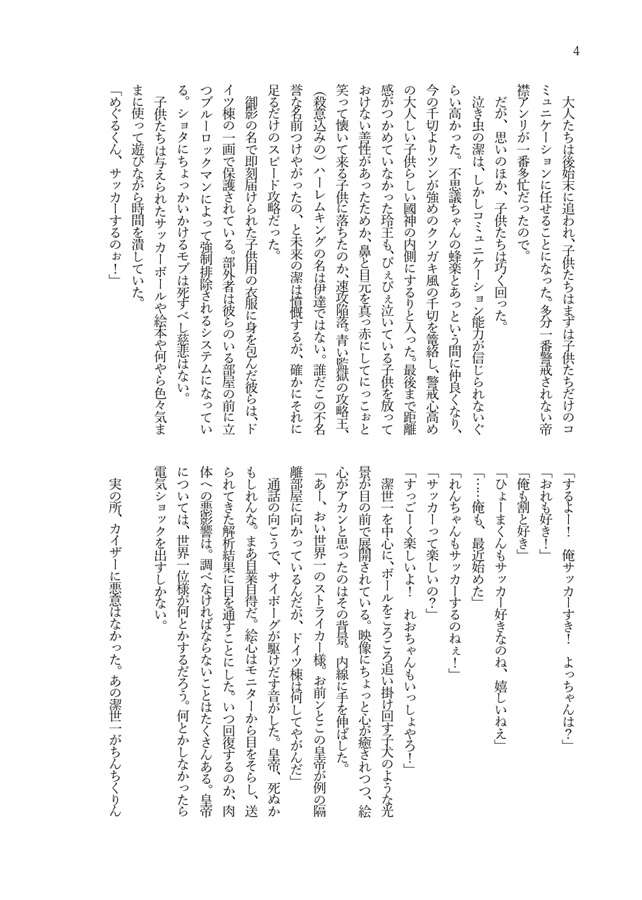 4
　大人たちは後始末に追われ、子供たちはまずは子供たちだけのコ
ミュニケーションに任せることになった。多分一番警戒されない帝
襟アンリが一番多忙だったので。
　だが、思いのほか、子供たちは巧く回った。
　泣き虫の潔は、しかしコミュニケーション能力が信じられないぐ
らい高かった。不思議ちゃんの蜂楽とあっという間に仲良くなり、
今の千切よりツンが強めのクソガキ風の千切を篭絡し、警戒心高め
の大人しい子供らしい國神の内側にするりと入った。最後まで距離
感がつかめていなかった玲王も、ぴぇぴぇ泣いている子供を放って
おけない善性があったためか、鼻と目元を真っ赤にしてにっこぉと
笑って懐いて来る子供に落ちたのか、速攻陥落。青い監獄の攻略王、
（殺意込みの）ハーレムキングの名は伊達ではない。誰だこの不名
誉な名前つけやがったの、と未来の潔は憤慨するが、確かにそれに
足るだけのスピード攻略だった。
　御影の名で即刻届けられた子供用の衣服に身を包んだ彼らは、ド
イツ棟の一画で保護されている。部外者は彼らのいる部屋の前に立
つブルーロックマンによって強制排除されるシステムになってい
る。ショタにちょっかいかけるモブは死すべし慈悲はない。
　子供たちは与えられたサッカーボールや絵本や何やら色々気ま
まに使って遊びながら時間を潰していた。
「めぐるくん、サッカーするのぉ！」
「するよー！　俺サッカーすき！　よっちゃんは？」
「おれも好き！」
「俺も割と好き」
「ひょーまくんもサッカー好きなのね、嬉しいねえ」
「……俺も、最近始めた」
「れんちゃんもサッカーするのねぇ！」
「サッカーって楽しいの？」
「すっごーく楽しいよ！　れおちゃんもいっしょやろ！」
　潔世一を中心に、ボールをころころ追い掛け回す子犬のような光
景が目の前で展開されている。映像にちょっと心が癒されつつ、絵
心がアカンと思ったのはその背景。内線に手を伸ばした。
「あー、おい世界一のストライカー様。お前ンとこの皇帝が例の隔
離部屋に向かっているんだが、ドイツ棟は何してやがんだ」
　通話の向こうで、サイボーグが駆けだす音がした。皇帝、死ぬか
もしれんな。まあ自業自得だ。絵心はモニターから目をそらし、送
られてきた解析結果に目を通すことにした。いつ回復するのか、肉
体への悪影響は。調べなければならないことはたくさんある。皇帝
については、世界一位様が何とかするだろう。何とかしなかったら
電気ショックを出すしかない。
　
　実の所、カイザーに悪意はなかった。あの潔世一がちんちくりん